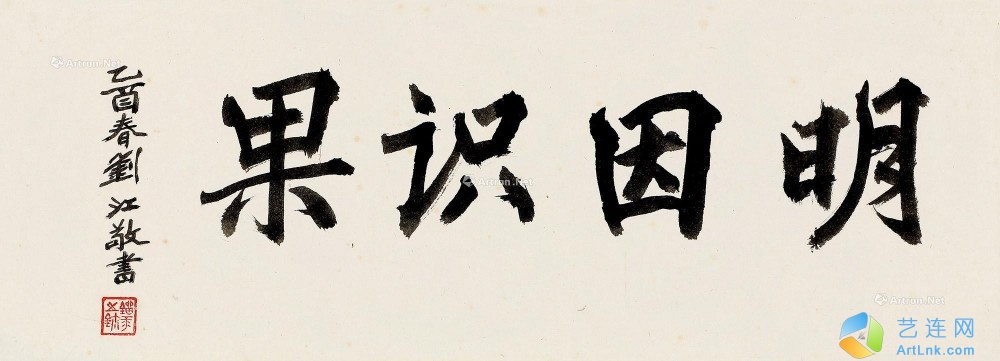 明因识果
乙酉春劉江敬書
Artron.Net
Artron.Net
Artron.Net
艺连网
ArtLnk.com